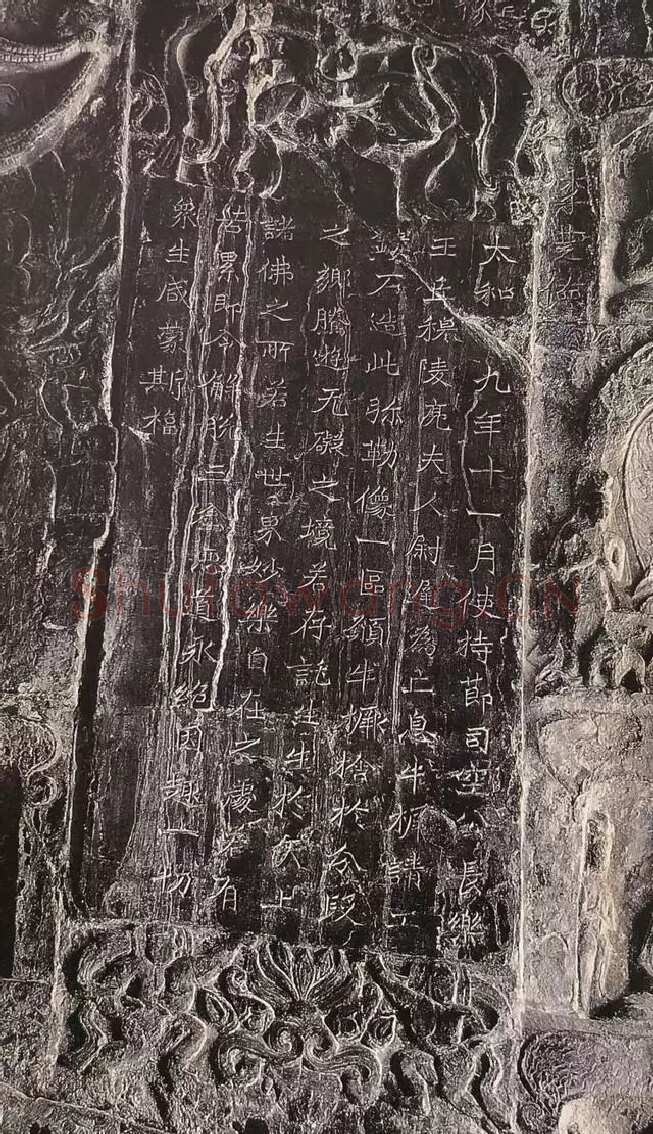 太和九年十一月使持節司空公長樂
王丘穆陵亮夫人尉遲為亡息牛橛請工
鏤石造此弥勒像一區願牛橛捨於分段
之鄉騰遊无礙之境若存託生生於天上
諸佛之所若生世界妙樂自在之處若有
苦累即令解脫三塗惡道永絕因趣一切
眾生咸蒙斯福
Shufawang.CN